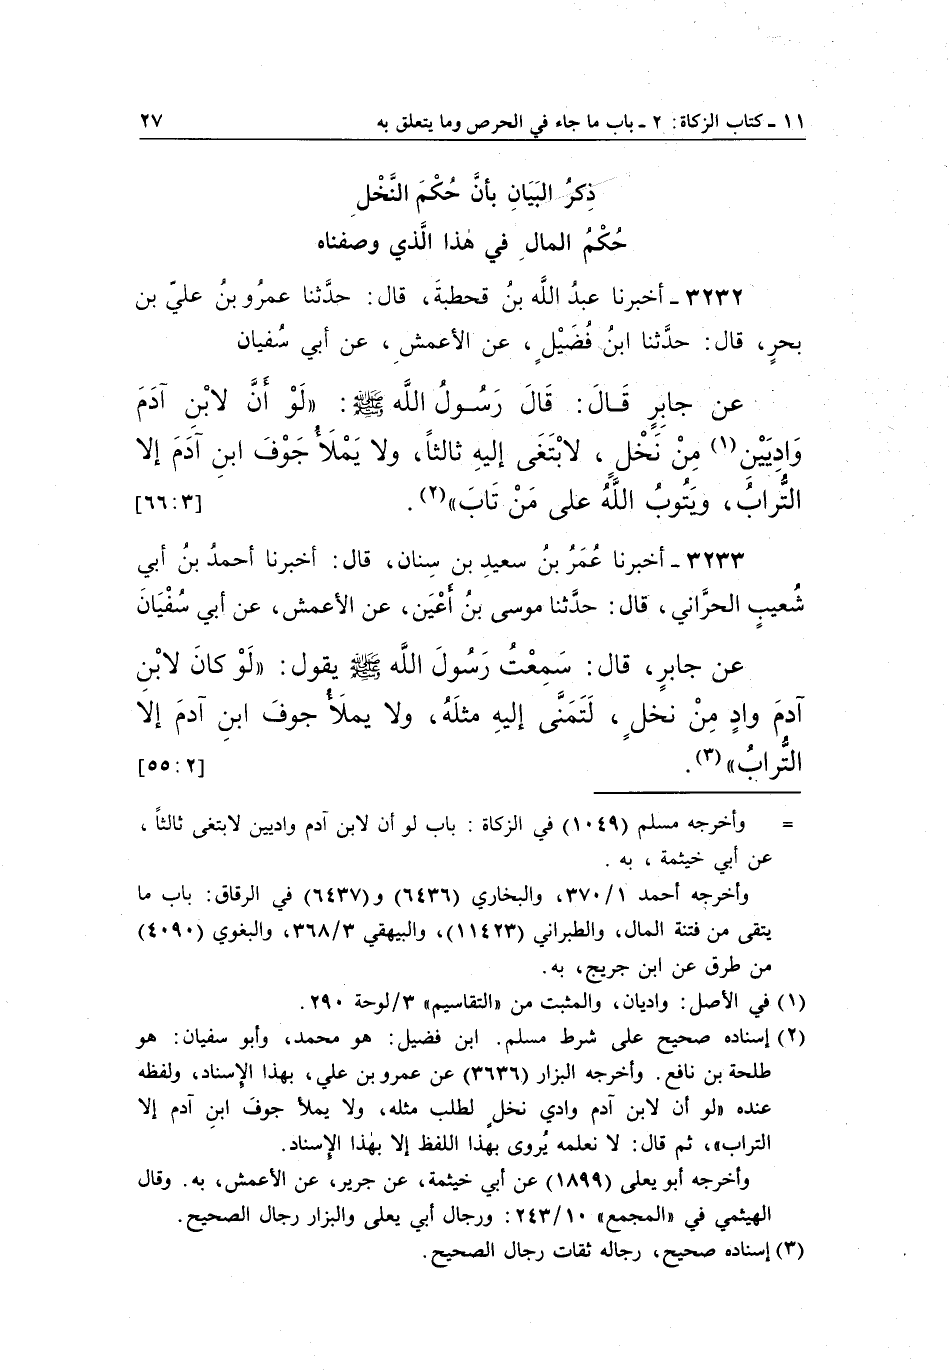 ١١ ـ كتاب الزكاة: ٢ ـ باب ما جاء في الحرص وما يتعلق به ٢٧
ذِكرُ البَيَانِ بأنَّ حُكْمَ النَّخْلِ
حُكْمُ المالِ في هٰذا الَّذي وصفناه
٣٢٣٢ ـ أخبرنا عبدُ اللَّه بنُ قحطبةَ، قال: حدَّثنا عمرُو بنُ عليّ بن
بحرٍ، قال: حدَّثنا ابنُ فُضَيْلٍ، عن الأعمشِ، عن أبي سُفيان
عن جابرٍ قَـالَ: قَالَ رَسُـولُ اللَّه ﷺ: «لَوْ أَنَّ لابْنِ آدَمَ
وَادِيَيْنِ(١) مِنْ نَخْلٍ، لابْتَغَى إليهِ ثالثاً، ولا يَمْلَأُ جَوْفَ ابنِ آدَمَ إلا
التُّرابُ، ويَتُوبُ اللَّهُ على مَنْ تَابَ»(٢). [٣:٦٦]
٣٢٣٣ ـ أخبرنا عُمَرُ بنُ سعيدِ بنِ سِنان، قال: أخبرنا أحمدُ بنُ أبي
شُعيبٍ الحرَّاني، قال: حدَّثنا موسى بنُ أَعْيَن، عن الأعمش، عن أبي سُفْيَانَ
عن جابرٍ، قال: سَمِعْتُ رَسُولَ اللَّه ﷺ يقول: «لَوْ كانَ لابْنِ
آدمَ وادٍ مِنْ نخلٍ، لَتَمَنَّى إليهِ مثلَهُ، ولا يملَأُ جوفَ ابنِ آدمَ إلا
التُّرابُ»(٣). [٢:٥٥]
= وأخرجه مسلم (١٠٤٩) في الزكاة : باب لو أن لابن آدم واديين لابتغى ثالثاً،
عن أبي خيثمة، به .
وأخرجه أحمد ٣٧٠/١، والبخاري (٦٤٣٦) و(٦٤٣٧) في الرقاق: باب ما
يتقى من فتنة المال، والطبراني (١١٤٢٣)، والبيهقي ٣٦٨/٣، والبغوي (٤٠٩٠)
من طرق عن ابن جريج، به.
(١) في الأصل: واديان، والمثبت من «التقاسيم» ٣/لوحة ٢٩٠.
(٢) إسناده صحيح على شرط مسلم. ابن فضيل: هو محمد، وأبو سفيان: هو
طلحة بن نافع. وأخرجه البزار (٣٦٣٦) عن عمرو بن علي، بهذا الإسناد، ولفظه
عنده «لو أن لابن آدم وادي نخلٍ لطلب مثله، ولا يملأ جوفَ ابنِ آدم إلا
التراب»، ثم قال: لا نعلمه يُروى بهذا اللفظ إلا بهٰذا الإسناد.
وأخرجه أبو يعلى (١٨٩٩) عن أبي خيثمة، عن جرير، عن الأعمش، به. وقال
الهيثمي في «المجمع» ٢٤٣/١٠: ورجال أبي يعلى والبزار رجال الصحيح.
(٣) إسناده صحيح، رجاله ثقات رجال الصحيح.